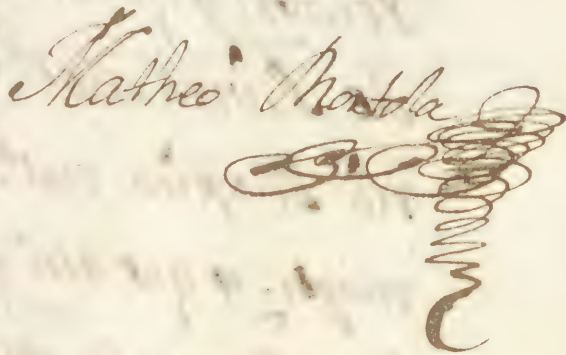 Matheo Montola